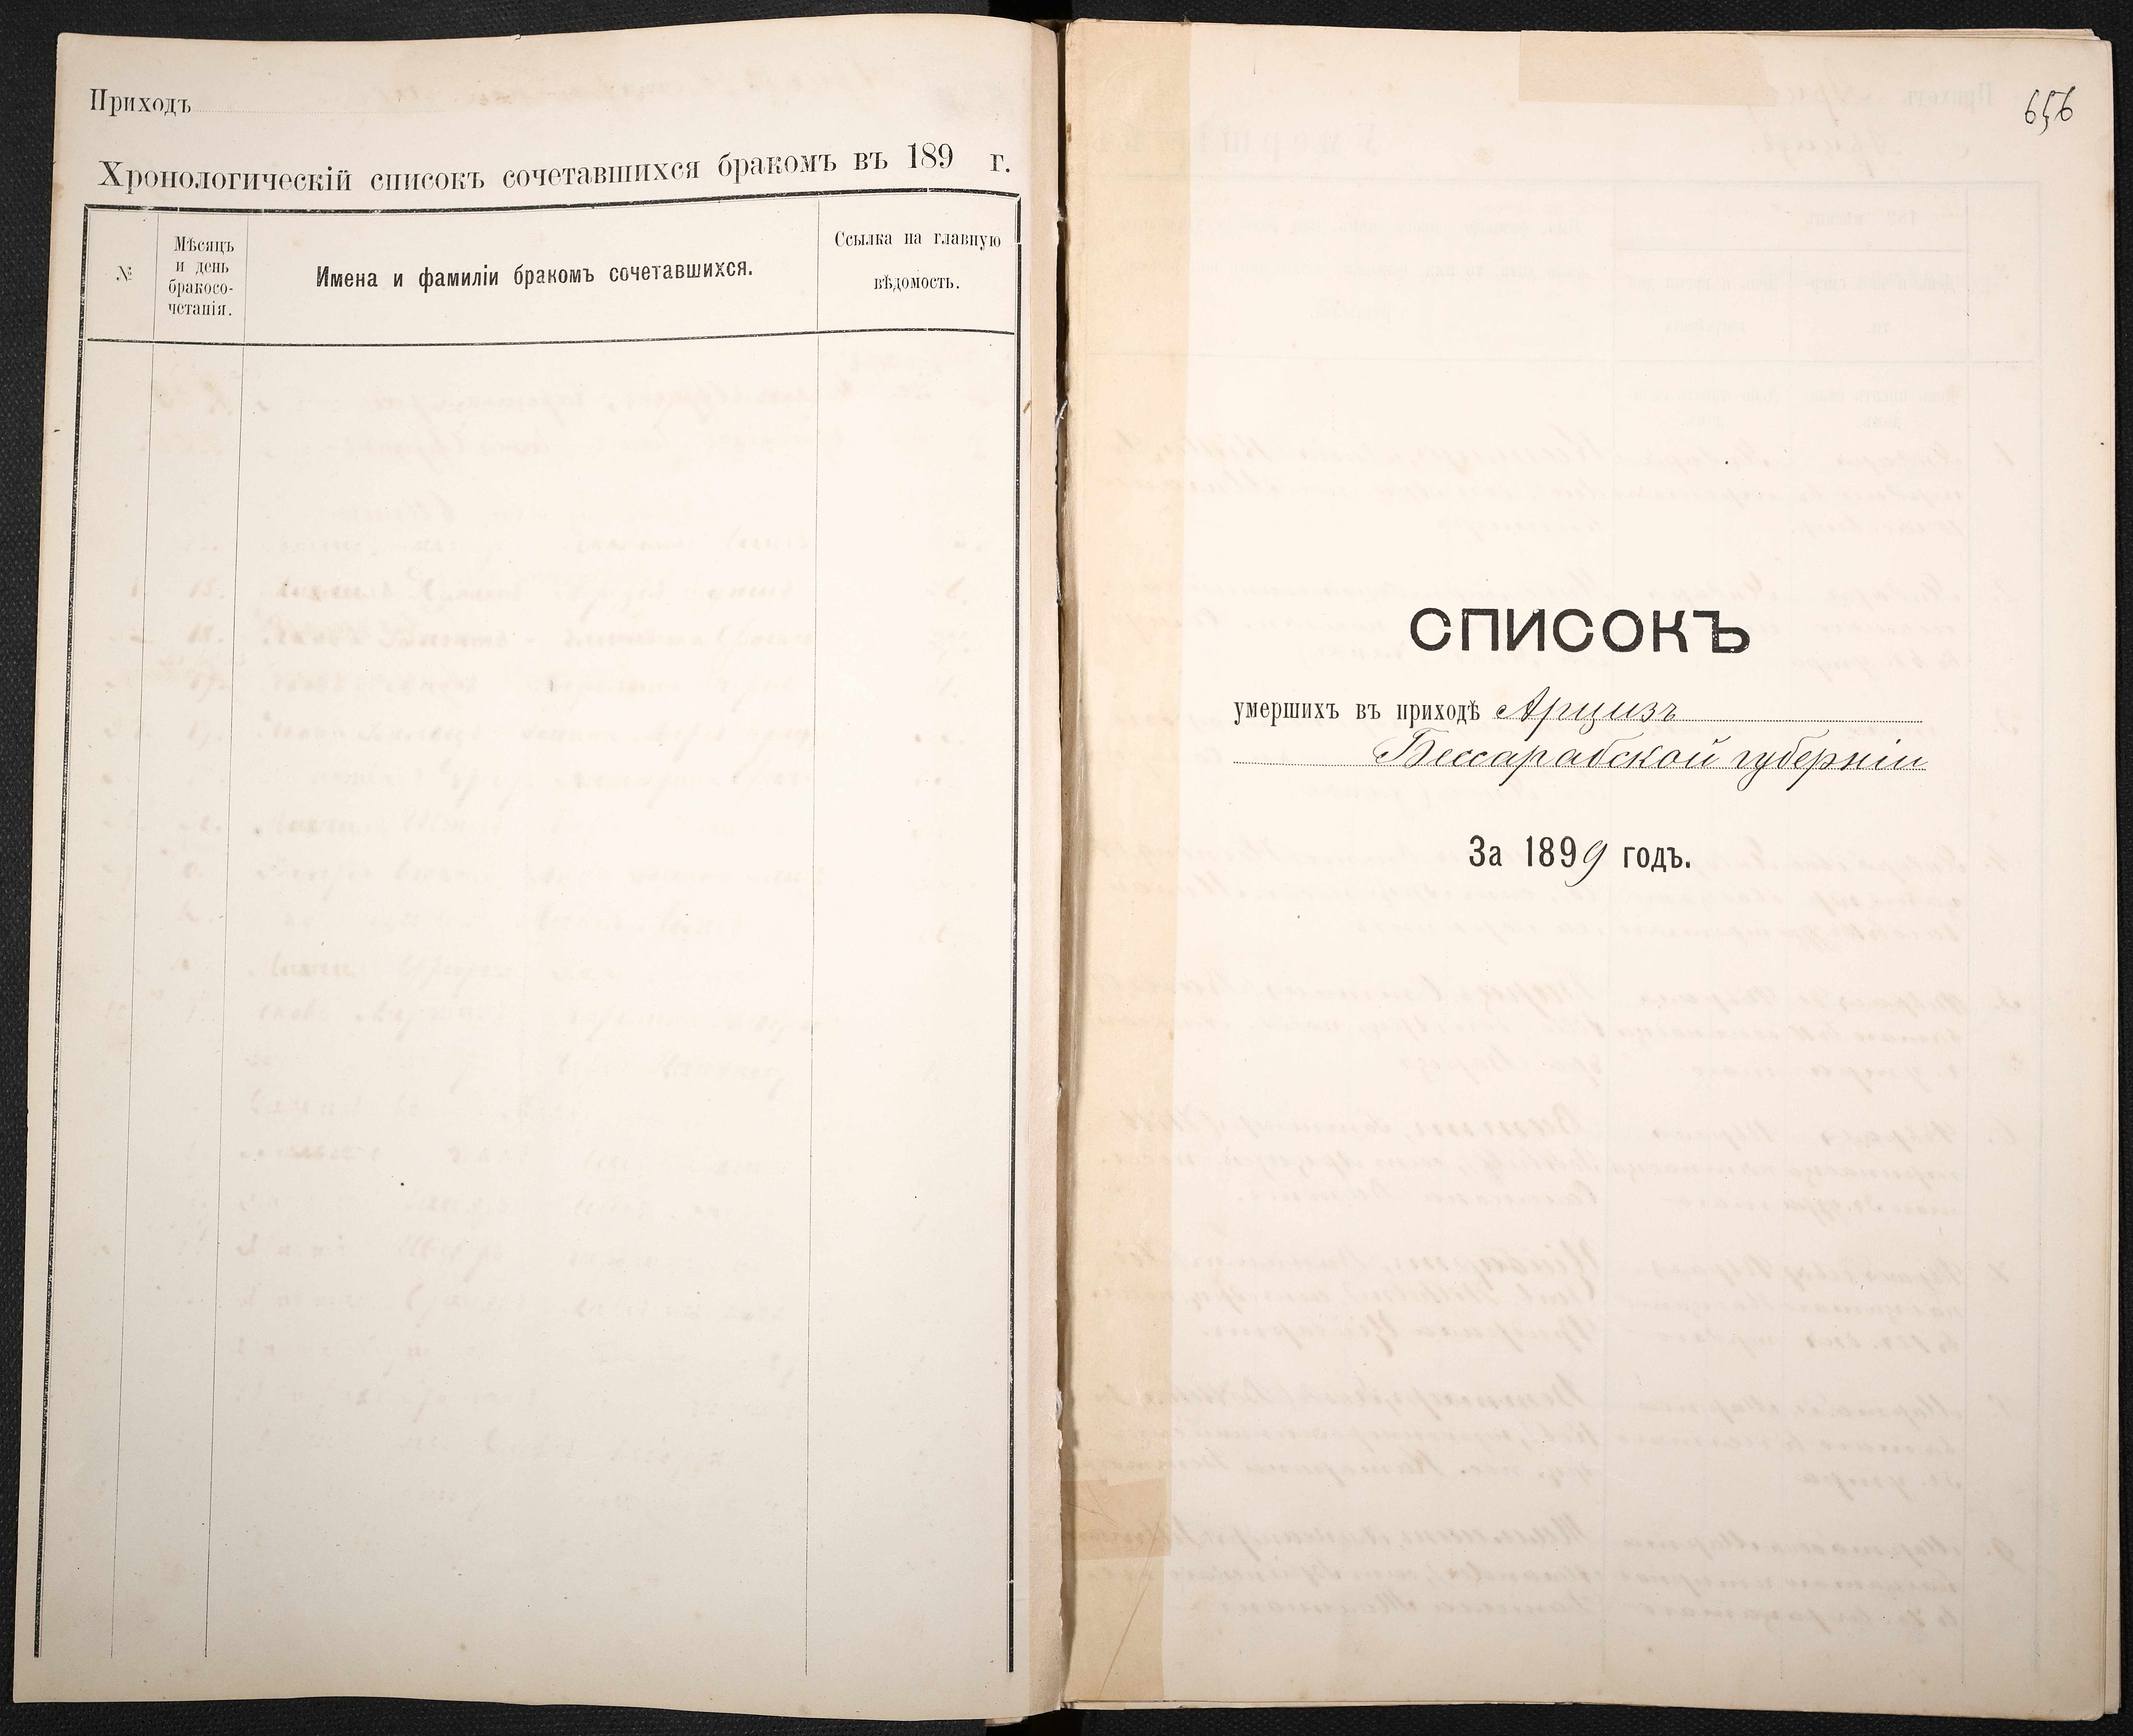 Приходъ
Хронологическій списокъ сочетавшихся бракомъ въ 189 г.
№
Мѣсяцъ
и день
бракосо-
четанія.
Имена и фамиліи бракомъ сочетавшихся.
Ссылка на главную
вѣдомость.
656
СПИСОКЪ
умершихъ въ приходѣ Арцизъ
Бессарабской губерніи
За 1899 годъ.